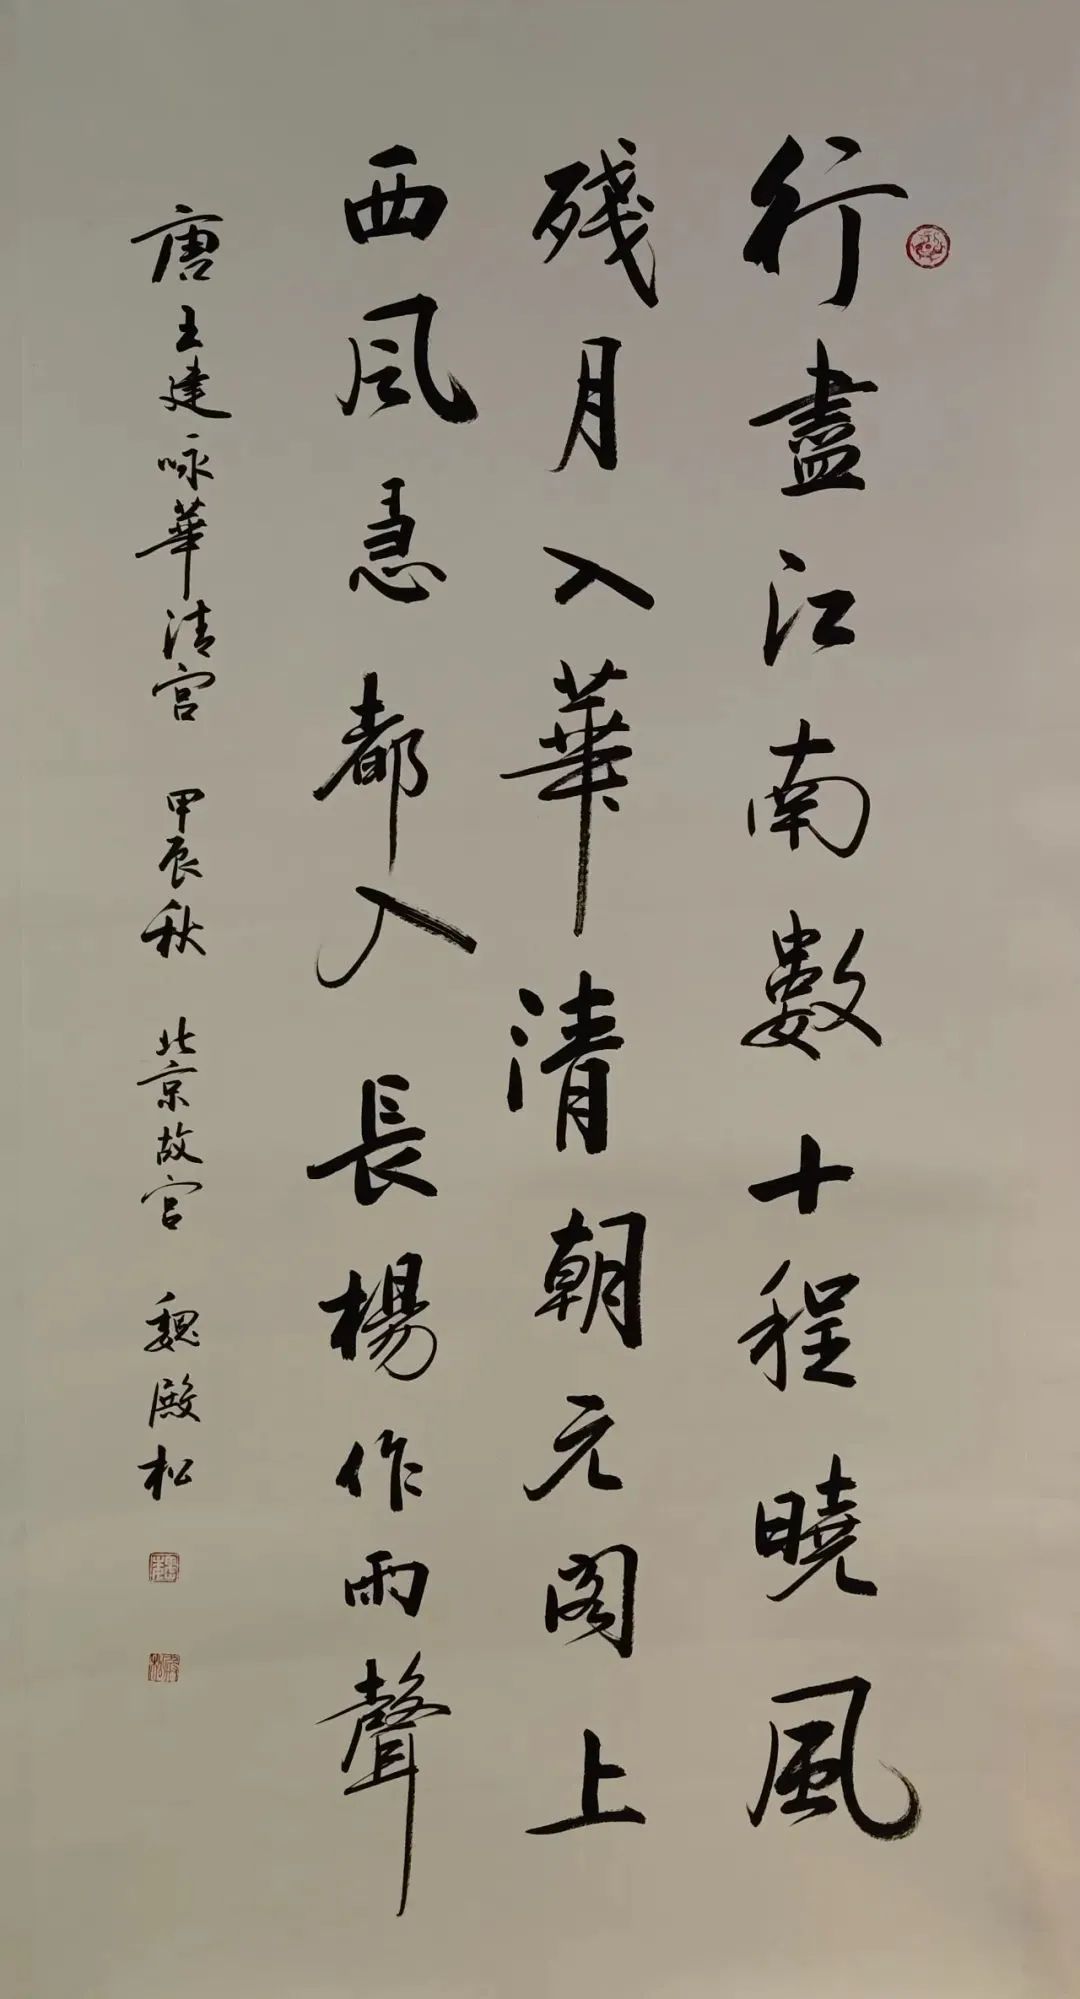 行盡江南數十程曉風
殘月入華清朝元閣上
西風急都入長楊作雨聲
唐王建咏華清宮 甲辰秋 北京故宮 魏殿松